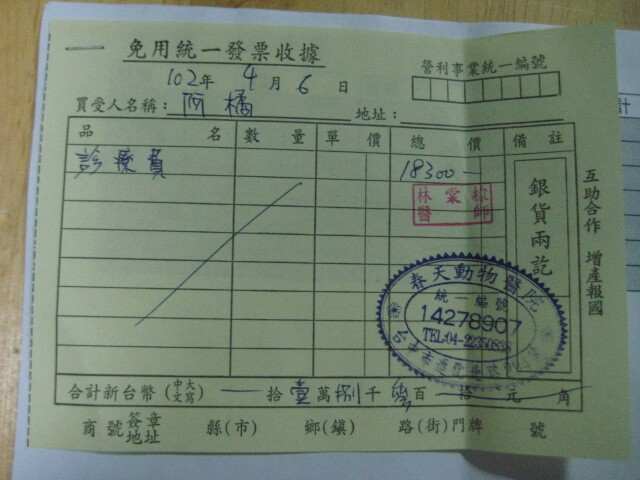 免用統一發票收據
營利事業統一編號
102年 4月 6日
買受人名稱：阿橘 地址：
品名 數量 單價 總價 備註
診療費 18300-
林棠樑
醫師
銀貨兩訖
互助合作 增產報國
春天動物醫院
統一編號
14278907
TEL:04-
合計新台幣(中文大寫) 拾壹萬捌千 百 拾 元 角
商號簽章地址 縣(市) 鄉(鎮) 路(街)門牌 號